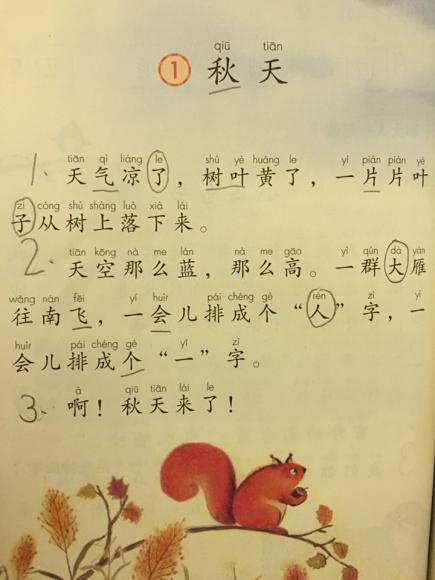 qiū tiān
① 秋天
tiān qì liáng le shù yè huáng le yí piàn piàn yè
1. 天气凉了，树叶黄了，一片片叶
zi cóng shù shàng luò xià lái
子从树上落下来。
tiān kōng nà me lán nà me gāo yì qún dà yàn
2. 天空那么蓝，那么高。一群大雁
wǎng nán fēi yí huìr pái chéng gè rén zì yí
往南飞，一会儿排成个“人”字，一
huìr pái chéng gè yī zì
会儿排成个“一”字。
à qiū tiān lái le
3. 啊！秋天来了！